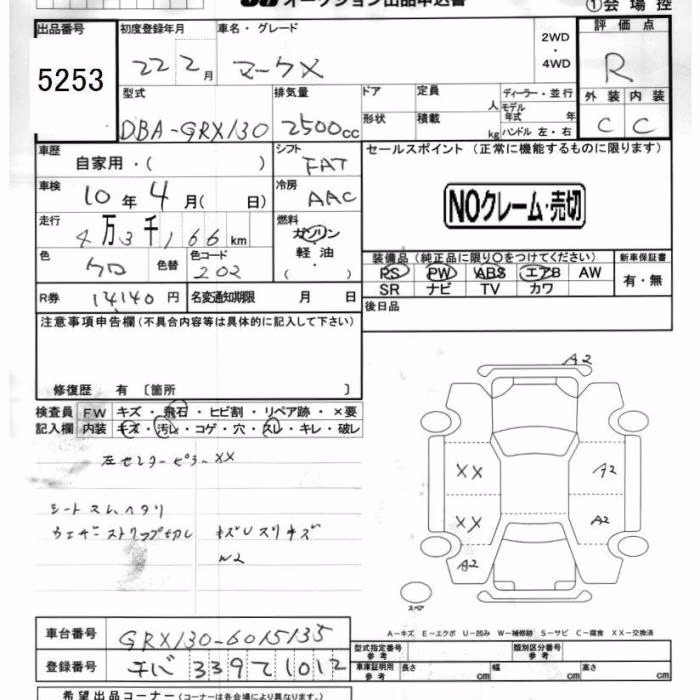 オークション出品申込書
①会場控
出品番号 5253
初度登録年月 22 2月
車名・グレード マークX
2WD・4WD
評価点 R
外装 内装
C C
型式 DBA-GRX130
排気量 2500cc
ドア 形状
定員 人 積載 kg
ディーラー・並行
モデル年式 年
ハンドル 左・右
車歴 自家用・( )
シフト FAT
セールスポイント(正常に機能するものに限ります)
NOクレーム・売切
車検 10年4月( 日)
冷房 AAC
走行 4万3千166km
燃料 ガソリン 軽油 ・( )
色 クロ 色替
色コード 202
装備品(純正品に限り○をつけてください)
新車保証書
PS PW ABS エアB AW
SR ナビ TV カワ
有・無
R券 14140円
名変通知期限 月 日
後日品
注意事項申告欄(不具合内容等は具体的に記入して下さい)
修復歴 有 〔箇所 〕
検査員記入欄
FW キズ・飛石・ヒビ割・リペア跡・×要
内装 キズ・汚れ・コゲ・穴・スレ・キレ・破レ
左センターピラーXX
シートスレヘタリ
ウェザーストリップ切レ
W2
A2
XX A2
XX A2
A2
スペア
A-キズ E-エクボ U-凹み W-補修跡 S-サビ C-腐食 XX-交換済
車台番号 GRX130-6015135
型式指定番号 参考
類別区分番号 参考
登録番号 千バ 339て1012
車庫証明用 参考 長さ cm 幅 cm 高さ cm
希望出品コーナー(コーナーは各会場により異なります。)